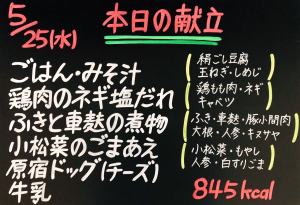 5/25(水)
本日の献立
ごはん・みそ汁
鶏肉のネギ塩だれ
ふきと車麩の煮物
小松菜のごまあえ
原宿ドッグ(チーズ)
牛乳
絹ごし豆腐
玉ねぎ・しめじ
鶏もも肉・ネギ
キャベツ
ふき・車麩・豚小間肉
大根・人参・キヌサヤ
小松菜・もやし
人参・白すりごま
845kcal